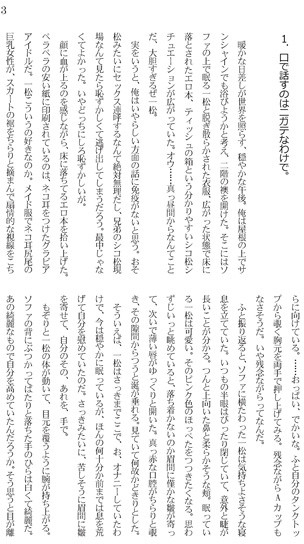 3
1．口で話すのはニガテなわけで。
暖かな日差しが世界を照らす、穏やかな午後。俺は屋根の上でサ
ンシャインでも浴びようかと考え、二階の襖を開けた。そこにはソ
ファの上で眠る一松と脱ぎ散らかされた衣服、広がった状態で床に
落とされたエロ本、ティッシュの箱という分かりやすいシコ松シ
チュエーションが広がっていた。オウ……真っ昼間からなんてこと
だ、大胆すぎるぜ一松。
実をいうと、俺はいやらしい方面の話に免疫がないと思う。おそ
松みたいにセックス連呼するなんて絶対無理だし、兄弟のシコ松現
場なんて見たら恥ずかしくて逃げ出してしまうだろう。最中じゃな
くてよかった。いやどっちにしろ恥ずかしいが。
顔に血が上るのを感じながら、床に落ちてるエロ本を拾い上げた。
ペラペラの安い紙に印刷されているのは、ネコ耳をつけたグラビア
アイドルだ。一松こういうの好きなのか。メイド服でネコ耳尻尾の
巨乳女性が、スカートの裾をちらりと摘まんで扇情的な視線をこち
らに向けている。……おっぱい、でかいな。ふと自分のタンクトッ
プから覗く胸元を両手で押し上げてみる。残念ながらAカップも
なさそうだ。いや残念ながらってなんだ。
ふと振り返ると、ソファに横たわった一松は気持ちよさそうな寝
息を立てていた。いつもの半眼はぴったり閉じていて、意外と睫が
長いことが分かる。つんと上向いた鼻と柔らかそうな頬。眠ってい
る一松は可愛い。そのピンク色のほっぺたをつつきたくなる。思わ
ずじいっと眺めていると、落ち着かないのか眉間に僅かな皺が寄っ
て、次いで薄い唇がゆっくりと開いた。真っ赤な口腔がちらりと覗
き、その隙間からつうと涎が垂れる。見ていて何故かどきりとした。
そういえば、一松はさっきまでここで、お、オナニーしていたわ
けで、今は穏やかに眠っているが、ほんの何十分か前までは息を荒
げて自分を慰めていたのだ。さっきみたいに、苦しそうに眉間に皺
を寄せて、自分のその　あれを、手で。
もぞりと一松の体が動いて、目元を覆うように腕が持ち上がる。
ソファの背にぶつかってぱたりと落ちた手のひらは白くて綺麗だ。
あの綺麗なもので自分を高めていたんだろうか。そう思うと目が離